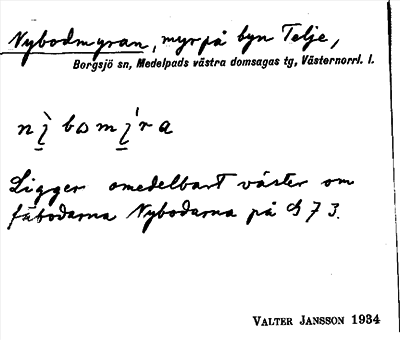 Nybodmyran, myr på byn Telje,
Borgsjö sn, Medelpads västra domsagas tg, Västernorrl. l.
Ligger omedelbart väster om
fäbodarna Nybodarna på 73.
VALTER JANSSON 1934